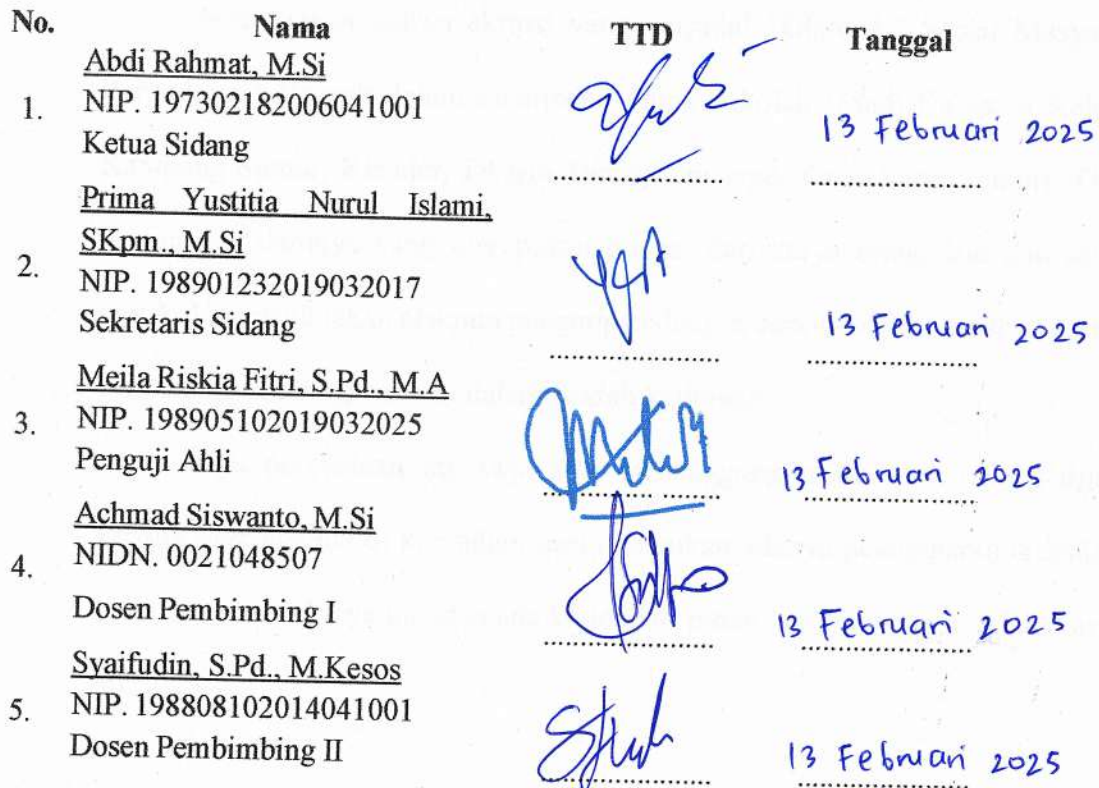 No. Nama TTD Tanggal
Abdi Rahmat, M.Si
1. NIP. 197302182006041001
Ketua Sidang
13 Februari 2025
Prima Yustitia Nurul Islami,
SKpm., M.Si
2. NIP. 198901232019032017
Sekretaris Sidang
13 Februari 2025
Meila Riskia Fitri, S.Pd., M.A
3. NIP. 198905102019032025
Penguji Ahli
13 Februari 2025
Achmad Siswanto, M.Si
4. NIDN. 0021048507
Dosen Pembimbing I
13 Februari 2025
Syaifudin, S.Pd., M.Kesos
5. NIP. 198808102014041001
Dosen Pembimbing II
13 Februari 2025